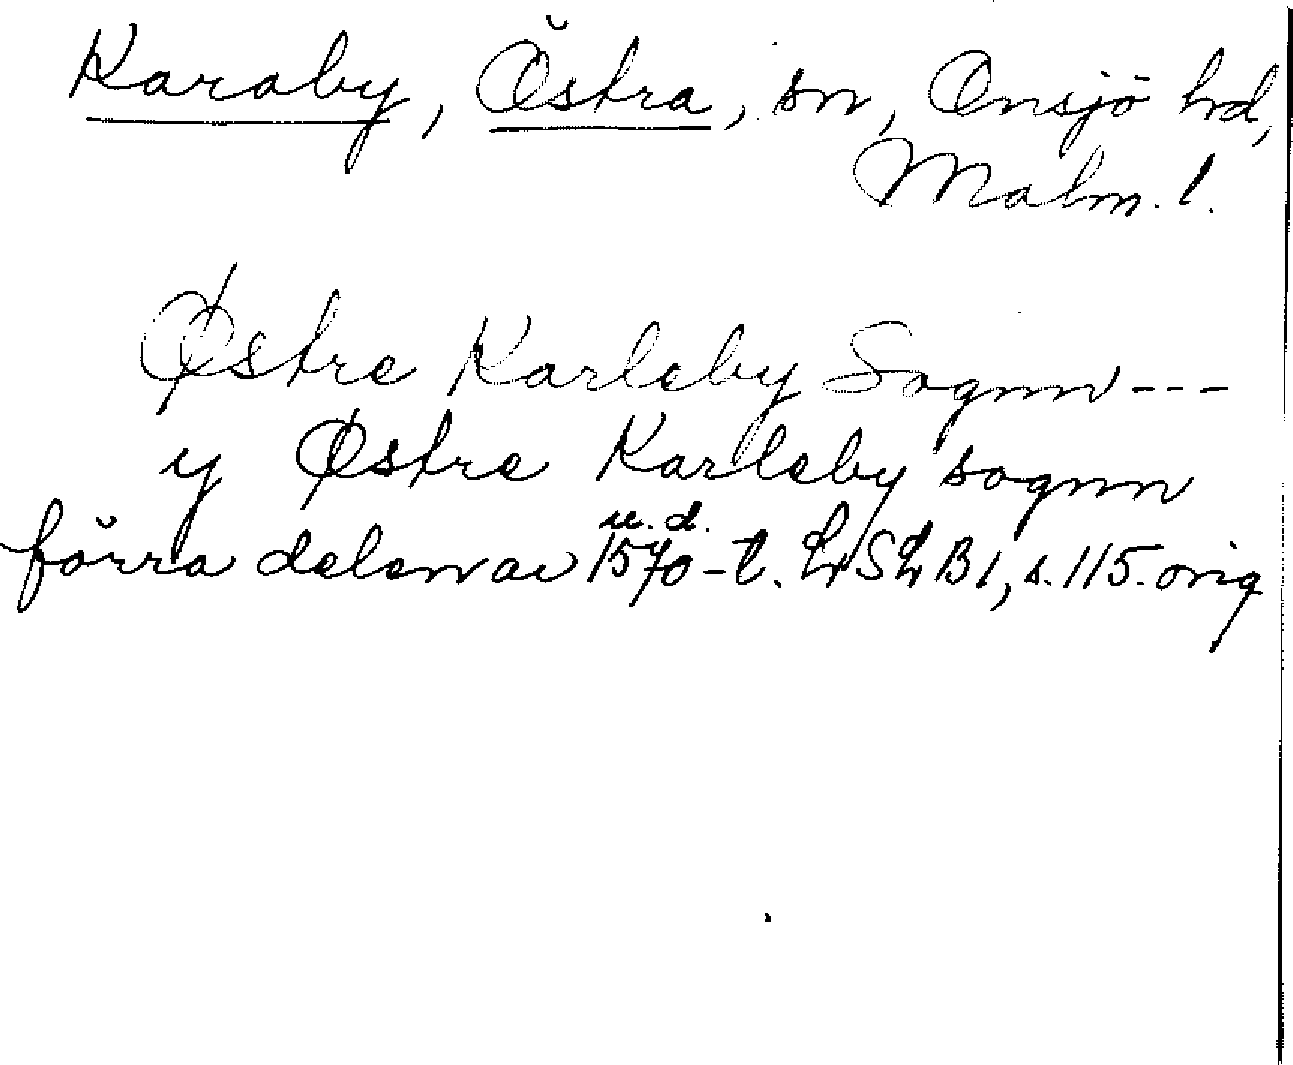 Karaby, Östra, sn, Onsjö hd,
Malm. l.
Østre Karleby Sognn---
y Østre Karleby sognn
u. d.
förra delen av 1570-t. LSLB1, s. 115. orig